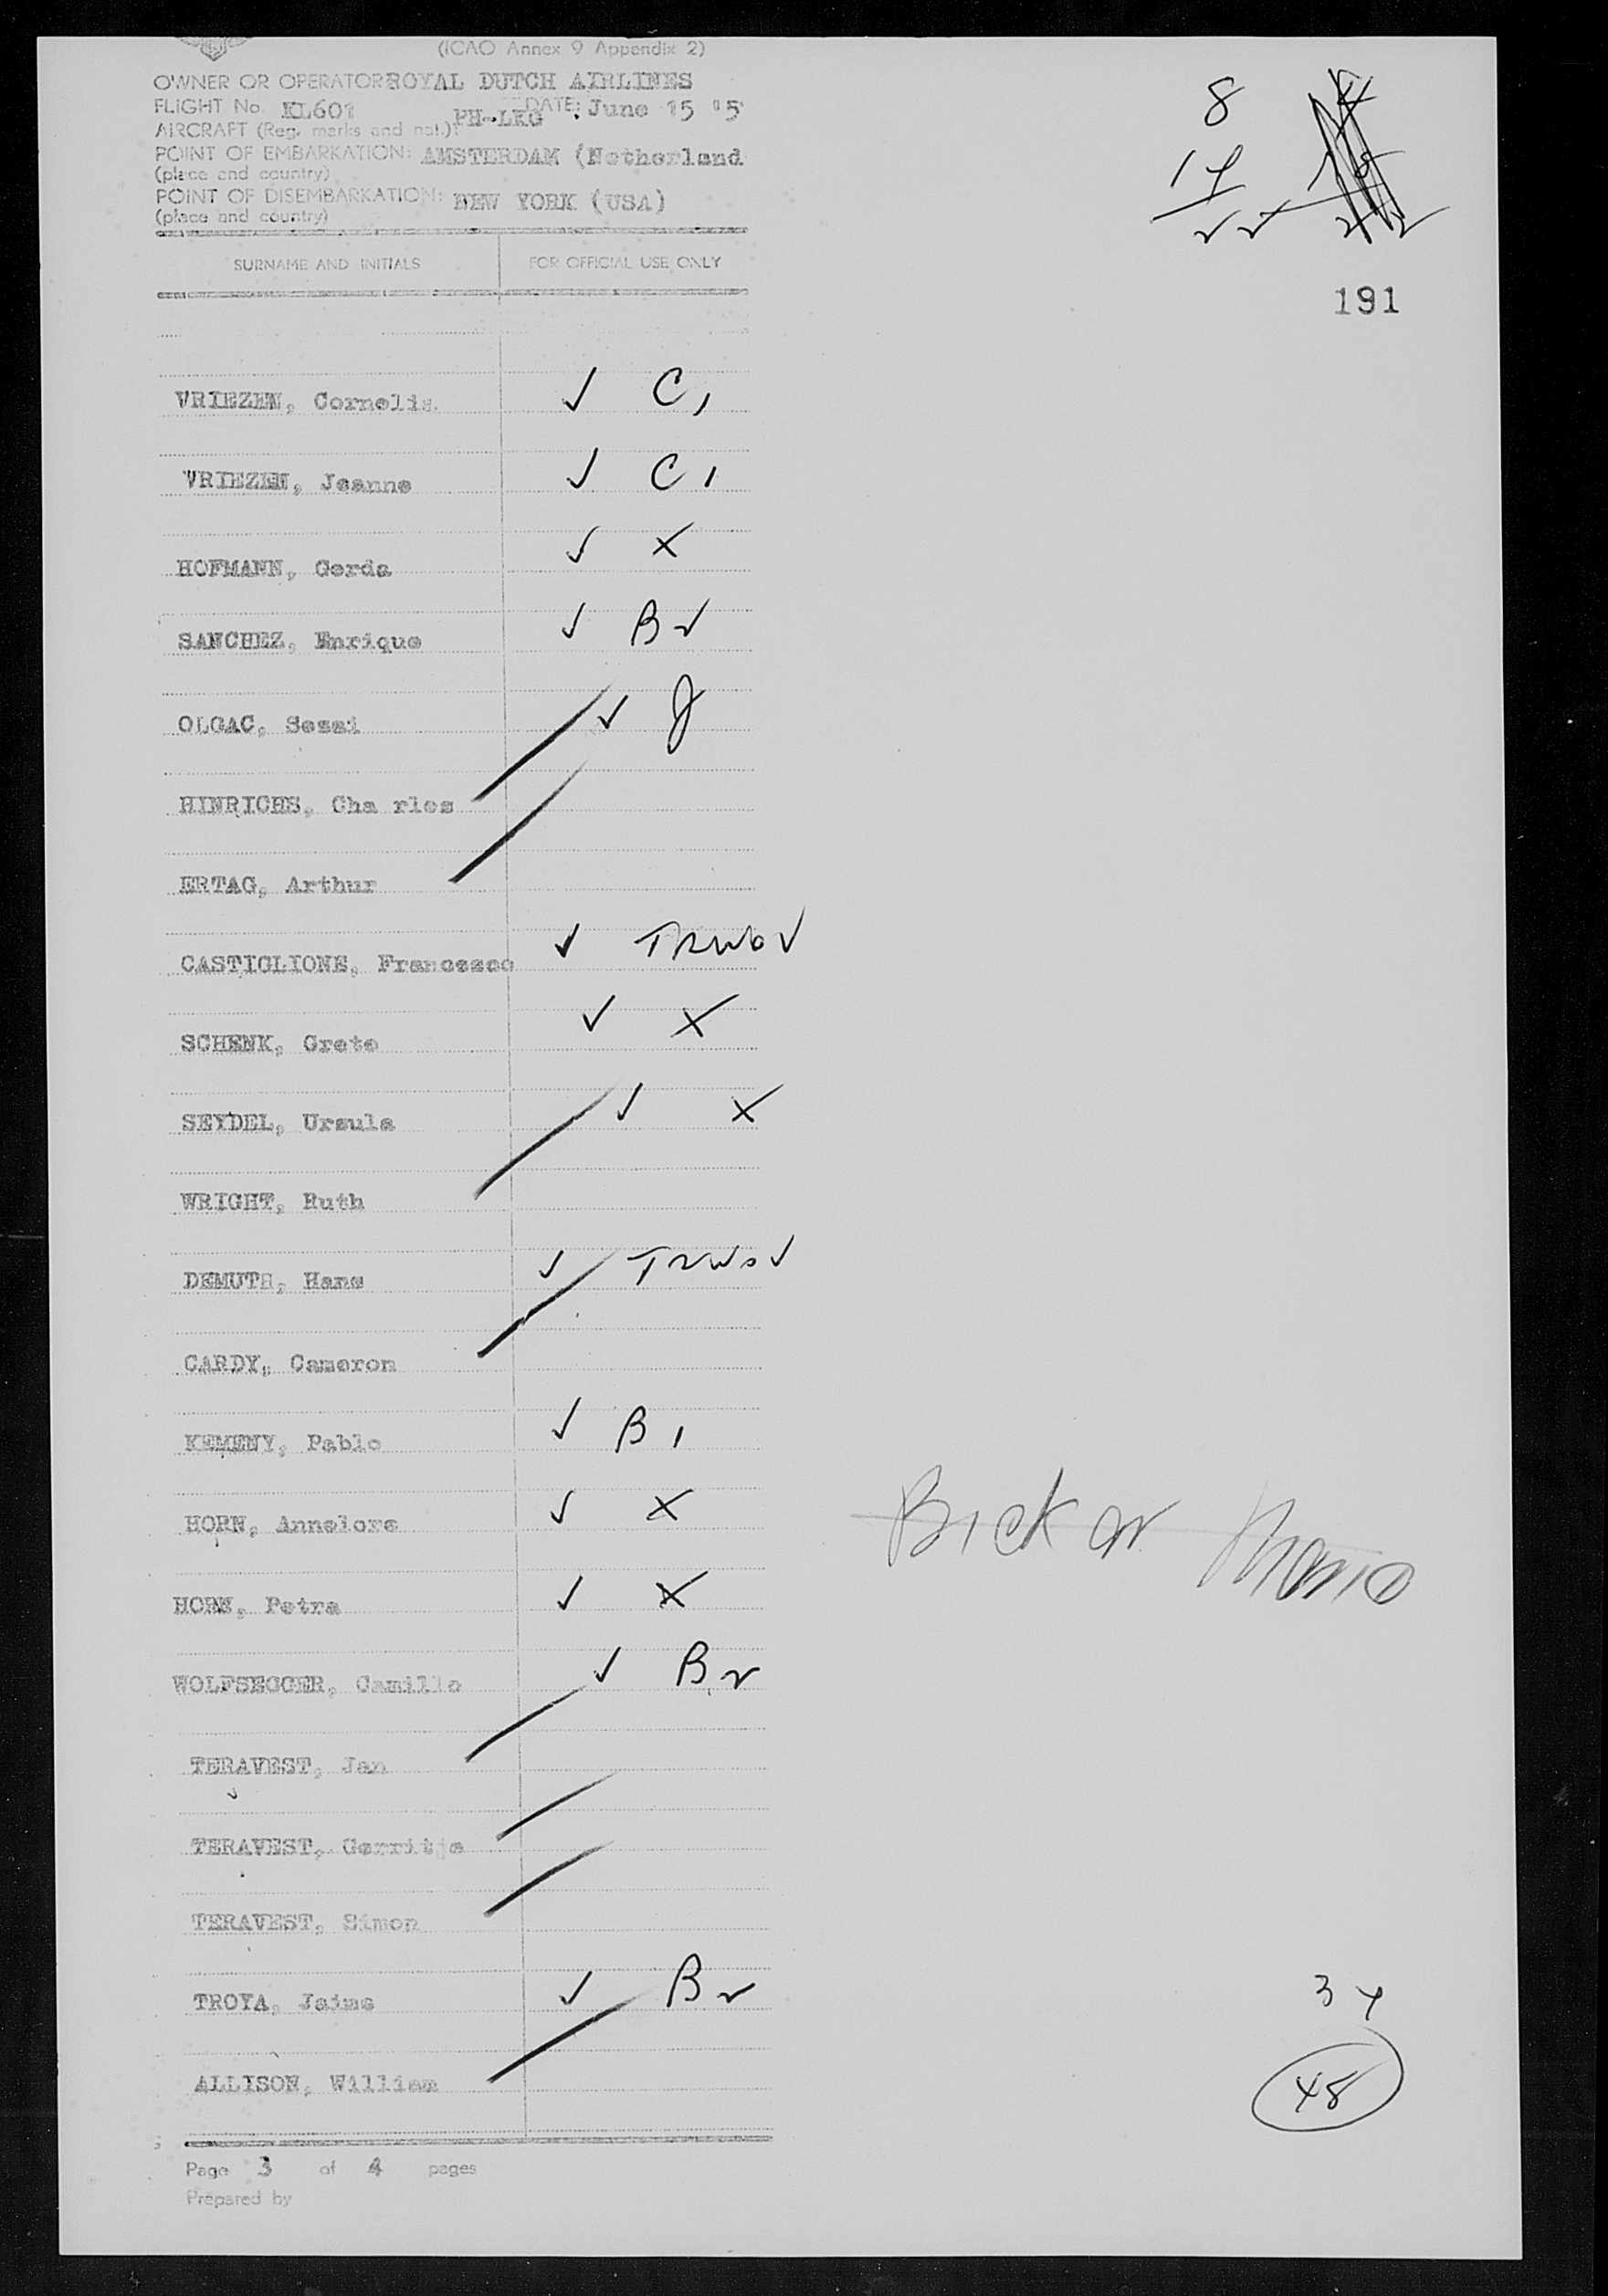 (ICAO Annex 9 Appendix 2)
OWNER OR OPERATOR ROYAL DUTCH AIRLINES
FLIGHT No. KL601 DATE: June 15 '5
AIRCRAFT (Reg. marks and nat.): PH-LKG
POINT OF EMBARKATION: AMSTERDAM (Netherland
(place and country)
POINT OF DISEMBARKATION: NEW YORK (USA)
(place and country)
8
14
22
191
SURNAME AND INITIALS FOR OFFICIAL USE ONLY
VRIEZEN, Cornelis ✓ C1
VRIEZEN, Jeanne ✓ C1
HOFMANN, Gerda ✓ X
SANCHEZ, Enrique ✓ B2
OLGAC, Sezai ✓ J
HINRICHS, Cha rles
ERTAG, Arthur
CASTIGLIONE, Francesco ✓ TRWOV
SCHENK, Grete ✓ X
SEYDEL, Ursula ✓ X
WRIGHT, Ruth
DEMUTH, Hans ✓ TRWOV
CARDY, Cameron
KEMENY, Pablo ✓ B1
HORN, Annelore ✓ X
HORN, Petra ✓ X
WOLFSEGGER, Camillo ✓ B2
TERAVEST, Jan
TERAVEST, Gerritje
TERAVEST, Simon
TROYA, Jaime ✓ B2
ALLISON, William
34
48
Page 3 of 4 pages
Prepared by